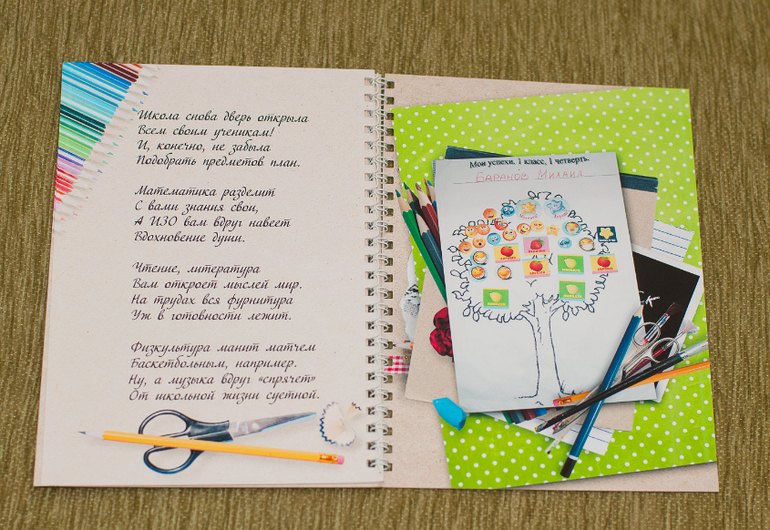 Школа снова дверь открыла
Всем своим ученикам!
И, конечно, не забыла
Подобрать предметов план.
Математика разделит
С вами знания свои,
А ИЗО вам вдруг навеет
Вдохновение души.
Чтение, литература
Вам откроет мыслей мир.
На трудах вся фурнитура
Уж в готовности лежит.
Физкультура манит матчем
Баскетбольным, например.
Ну, а музыка вдруг «спрячет»
От школьной жизни суетной.
Мои успехи. 1 класс, 1 четверть.
БАРАНОВ МИХАИЛ